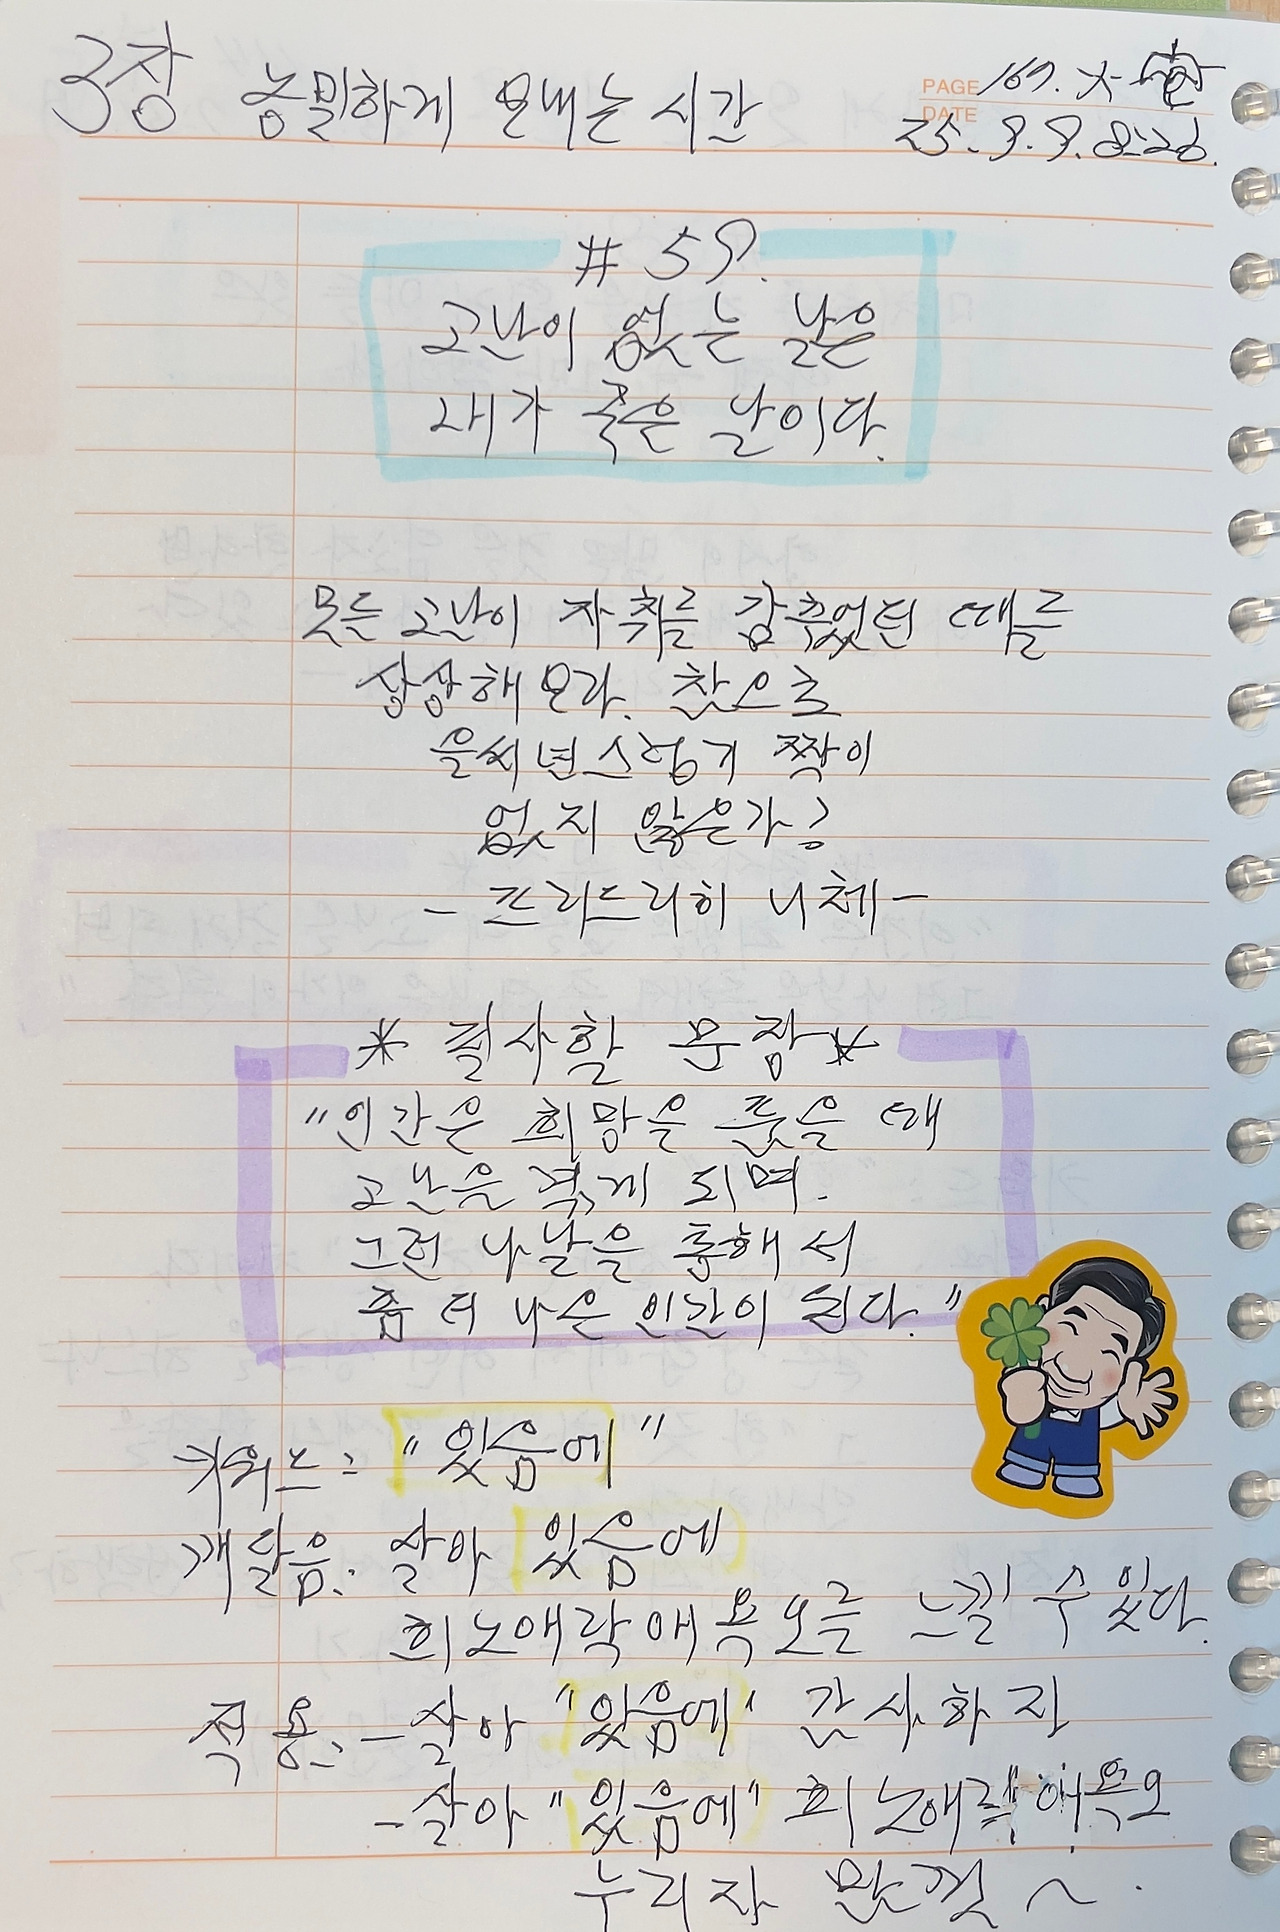 3장 농밀하게 보내는 시간
PAGE 167.
DATE 25. 9. 9. 8:26.
# 59.
고난이 없는 날은
내가 죽은 날이다.
모든 고난이 자취를 감추었던 때를
상상해 보라. 참으로
을씨년스럽기 짝이
없지 않은가?
- 프리드리히 니체 -
* 필사할 문장 *
"인간은 희망을 품을 때
고난을 겪게 되며.
그런 나날을 통해서
좀 더 나은 인간이 된다."
키워드: "있음에"
깨달음: 살아 있음에
희노애락애욕오를 느낄 수 있다.
적용: - 살아 "있음에" 감사하자
- 살아 "있음에" 희노애락애욕오
누리자 맘껏 ~.